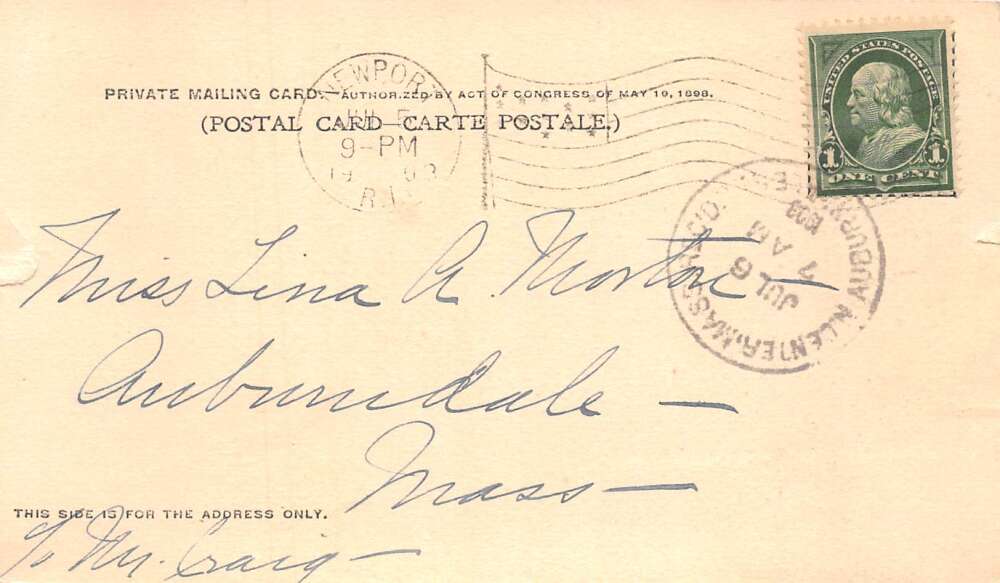 PRIVATE MAILING CARD.—AUTHORIZED BY ACT OF CONGRESS OF MAY 19, 1898.
(POSTAL CARD—CARTE POSTALE.)
NEWPORT
JUL 5
9-PM
1903
R.I.
UNITED STATES POSTAGE
1 1
ONE CENT
AUBURN CENTER, MASS.
JUL 6
7 AM
1903
REC'D.
Miss Lina A. Morton —
Auburndale —
Mass —
THIS SIDE IS FOR THE ADDRESS ONLY.
c/o Mr. Craig —